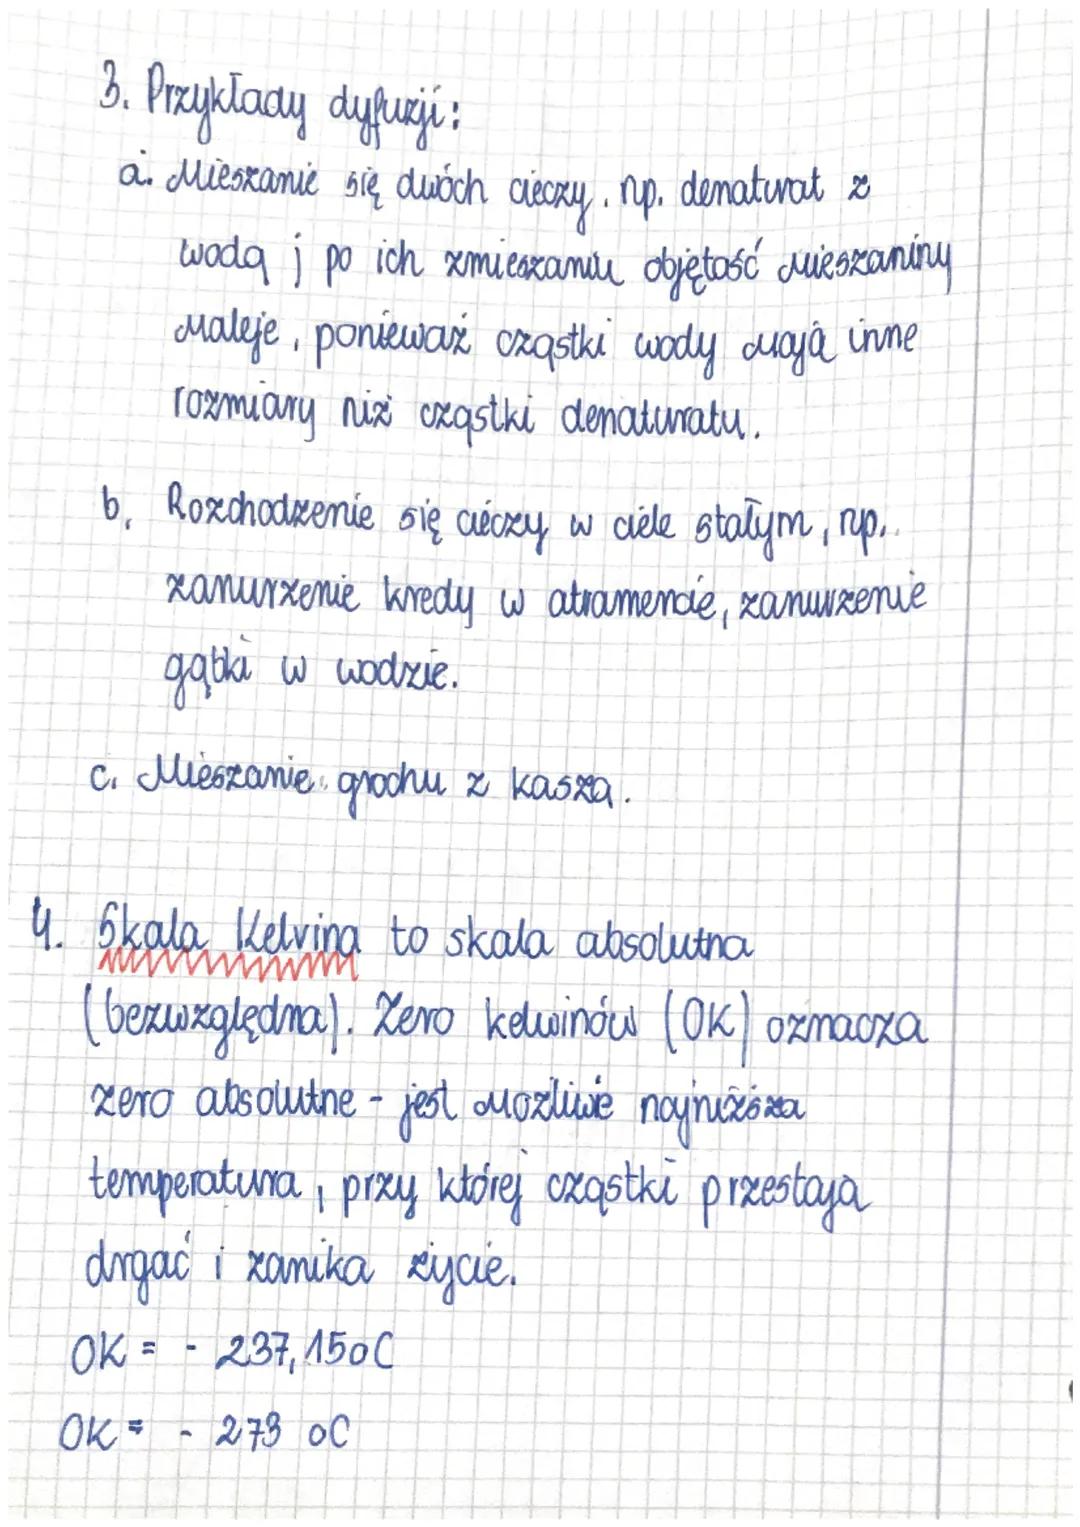 3. Przykłady dyfuzji:
a. Mieszanie się dwóch cieczy. np. denaturat z
wodą j po ich zmieszaniu objętość mieszaniny
maleje, ponieważ cząstki wody mają inne
rozmiary niż cząstki denaturatu.
b. Rozchodzenie się cieczy w ciele stałym, np.
zanurzenie kredy w atramencie, zanurzenie
gąbki w wodzie.
c. Mieszanie grochu z kaszą.
4. Skala Kelvina to skala absolutna
(bezwzględna). Zero kelwinów (0K) oznacza
zero absolutne - jest możliwie najniższa
temperatura, przy której cząstki przestają
drgać i zanika życie.
0K = - 237,15oC
0K = - 273 oC